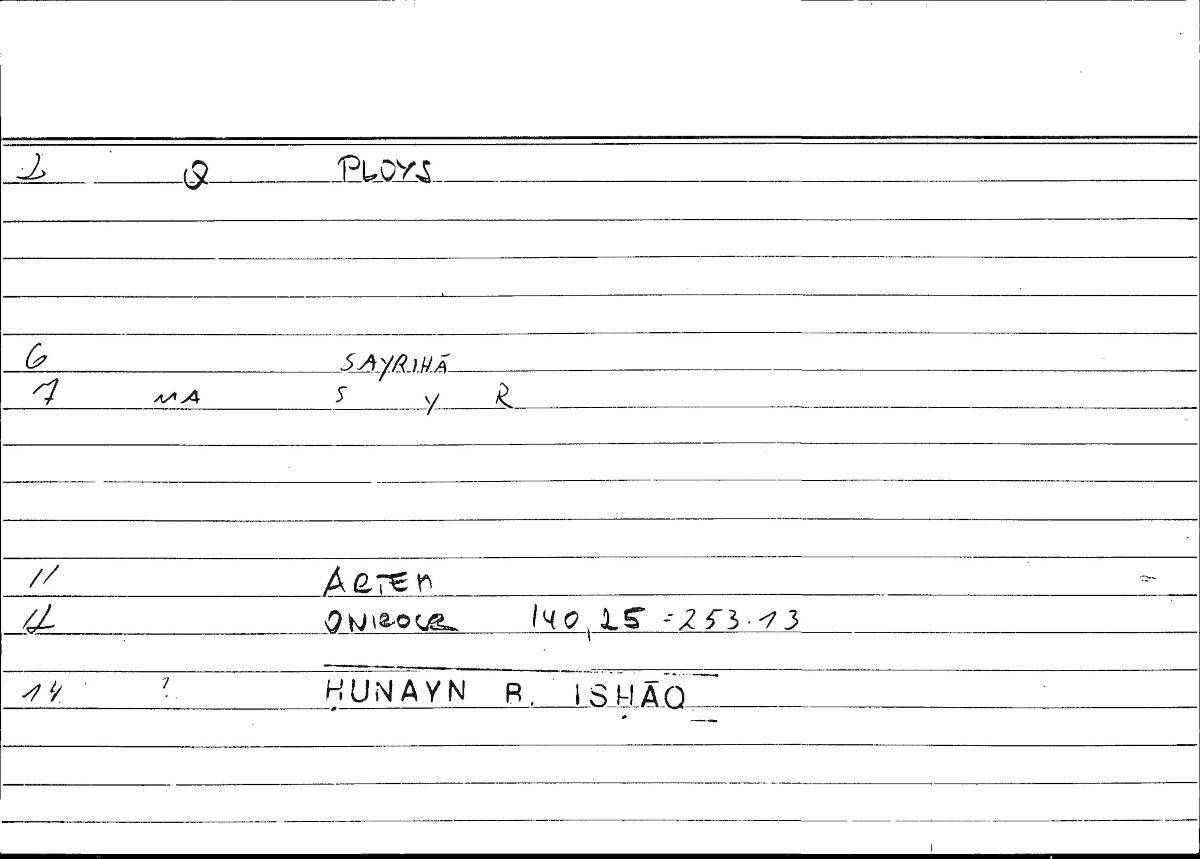 2 Q PLOYS
6 SAYRIHĀ
7 MA S Y R
11 ARTEM
12 ONIROCR 140,25 = 253.13
14 ? ḤUNAYN B. ISḤĀQ